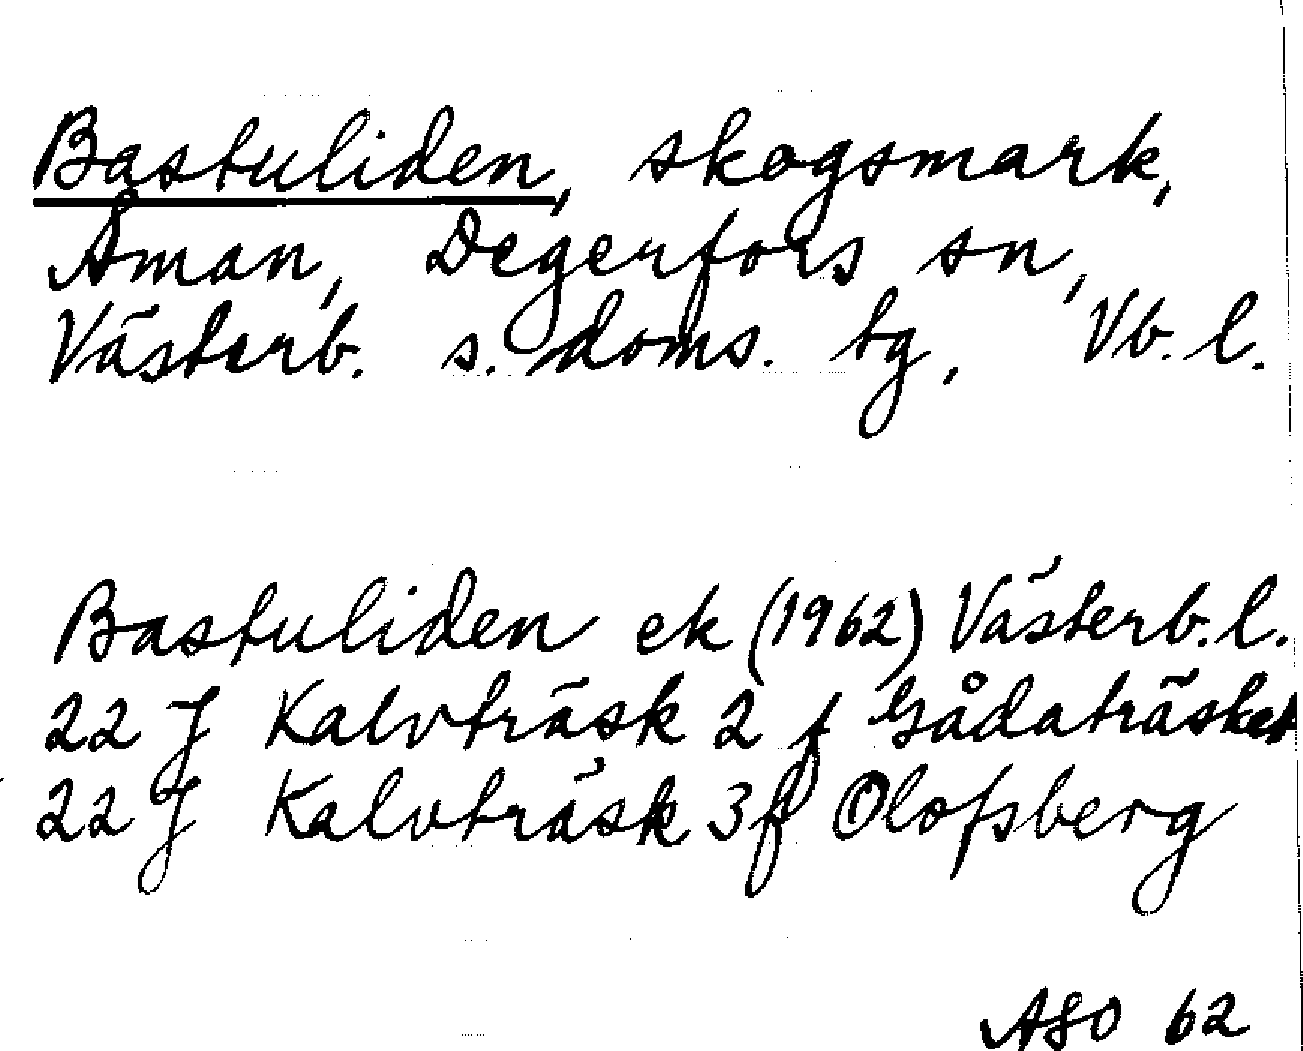 Bastuliden, skogsmark,
Åman, Degerfors sn,
Västerb. s. doms. tg, Vb. l.
Bastuliden ek (1962) Västerb. l.
22 J Kalvträsk 2 f Gådaträsket
22 J Kalvträsk 3 f Olofsberg
ASO 62